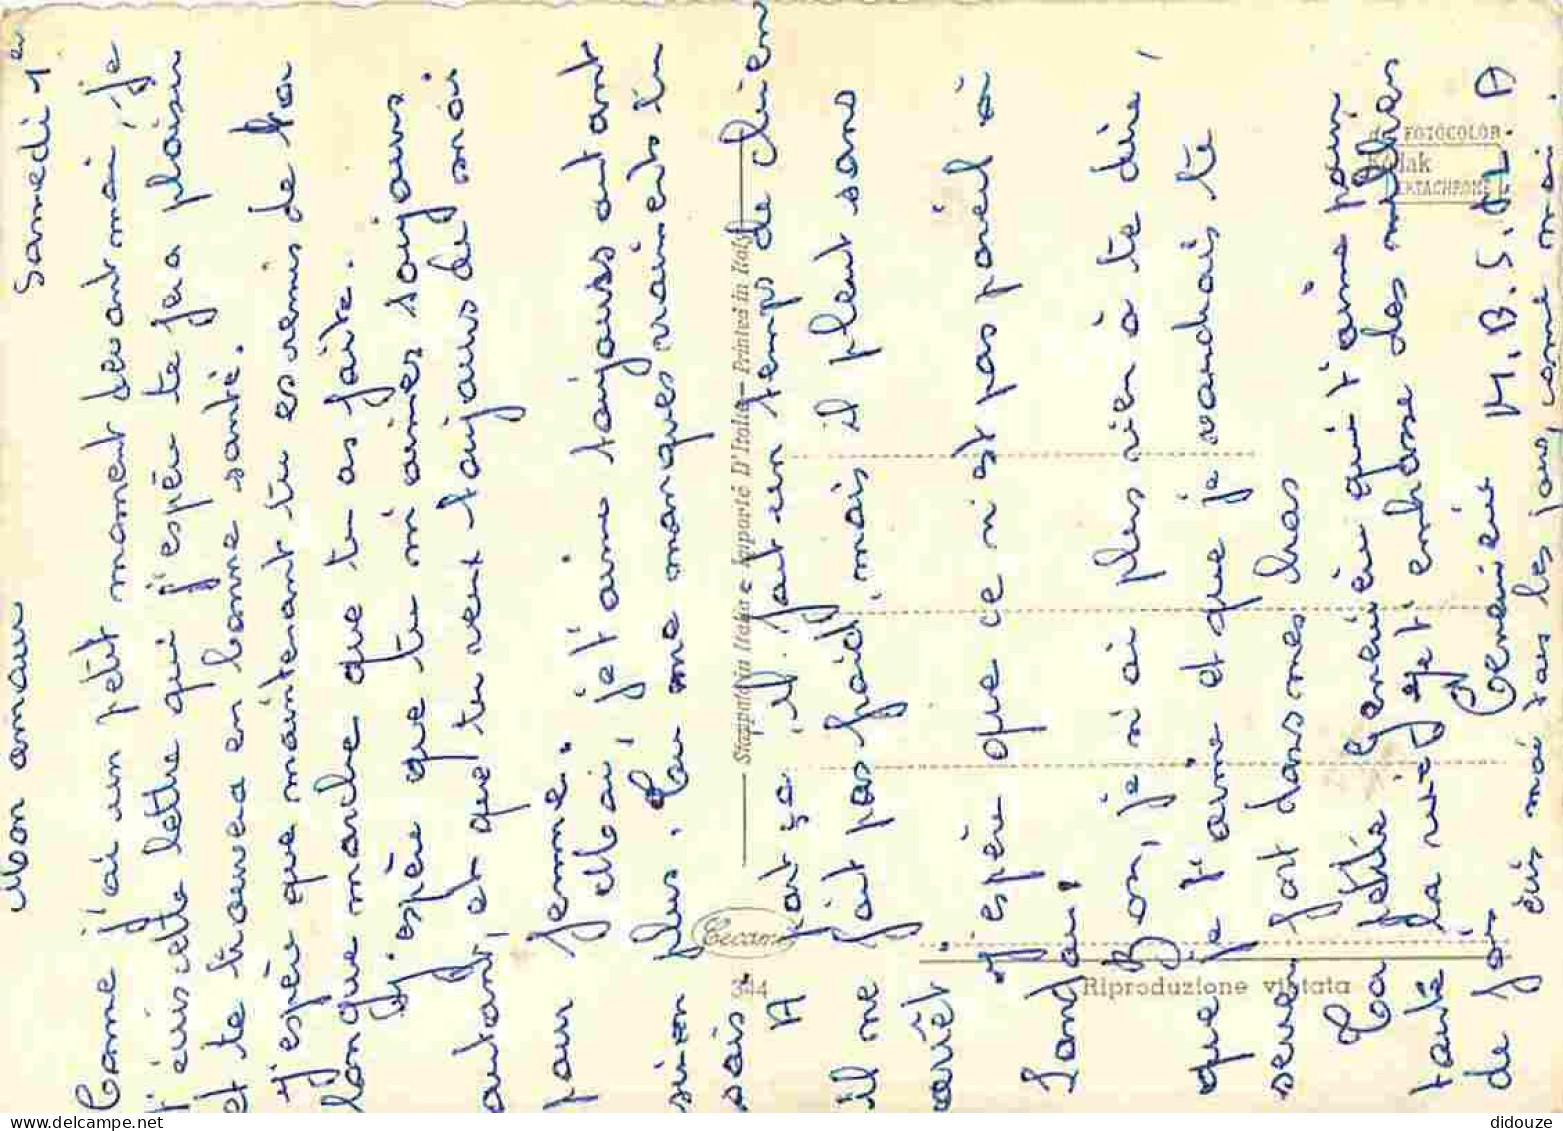 Samedi 1er
Mon amour
Come j'ai un petit moment devant moi, je
t'écris cette lettre qui j'espère te fera plaisir
et te trouvera en bonne santé.
J'espère que maintenant tu es remis de ta
longue marche que tu as faite.
J'espère que tu m'aimes toujours
autant, et que tu veut toujours de moi
pour femme.
Moi, je t'aime toujours autant
sinon plus. Tu me manques vraiment tu
sais.
A part ça, il fait un temps de chien
il ne fait pas froid, mais il pleut sans
arrêt
J'espère que ce n'est pas pareil à
Landau!
Bon, je n'ai plus rien à te dire,
que je t'aime et que je voudrais te
serrer fort dans mes bras
Ta petite femme qui t'aime pour
toute la vie, et t'embrasse des milliers
de fois
M.B.S.A.L.A
écris moi tous les jours, come moi.
Stampato in Italia e Importé D'Italie - Printed in Italy
Cecami
344
Riproduzione vietata
da FOTOCOLOR
Kodak
EKTACHROME
https://www.delcampe.net
didouze